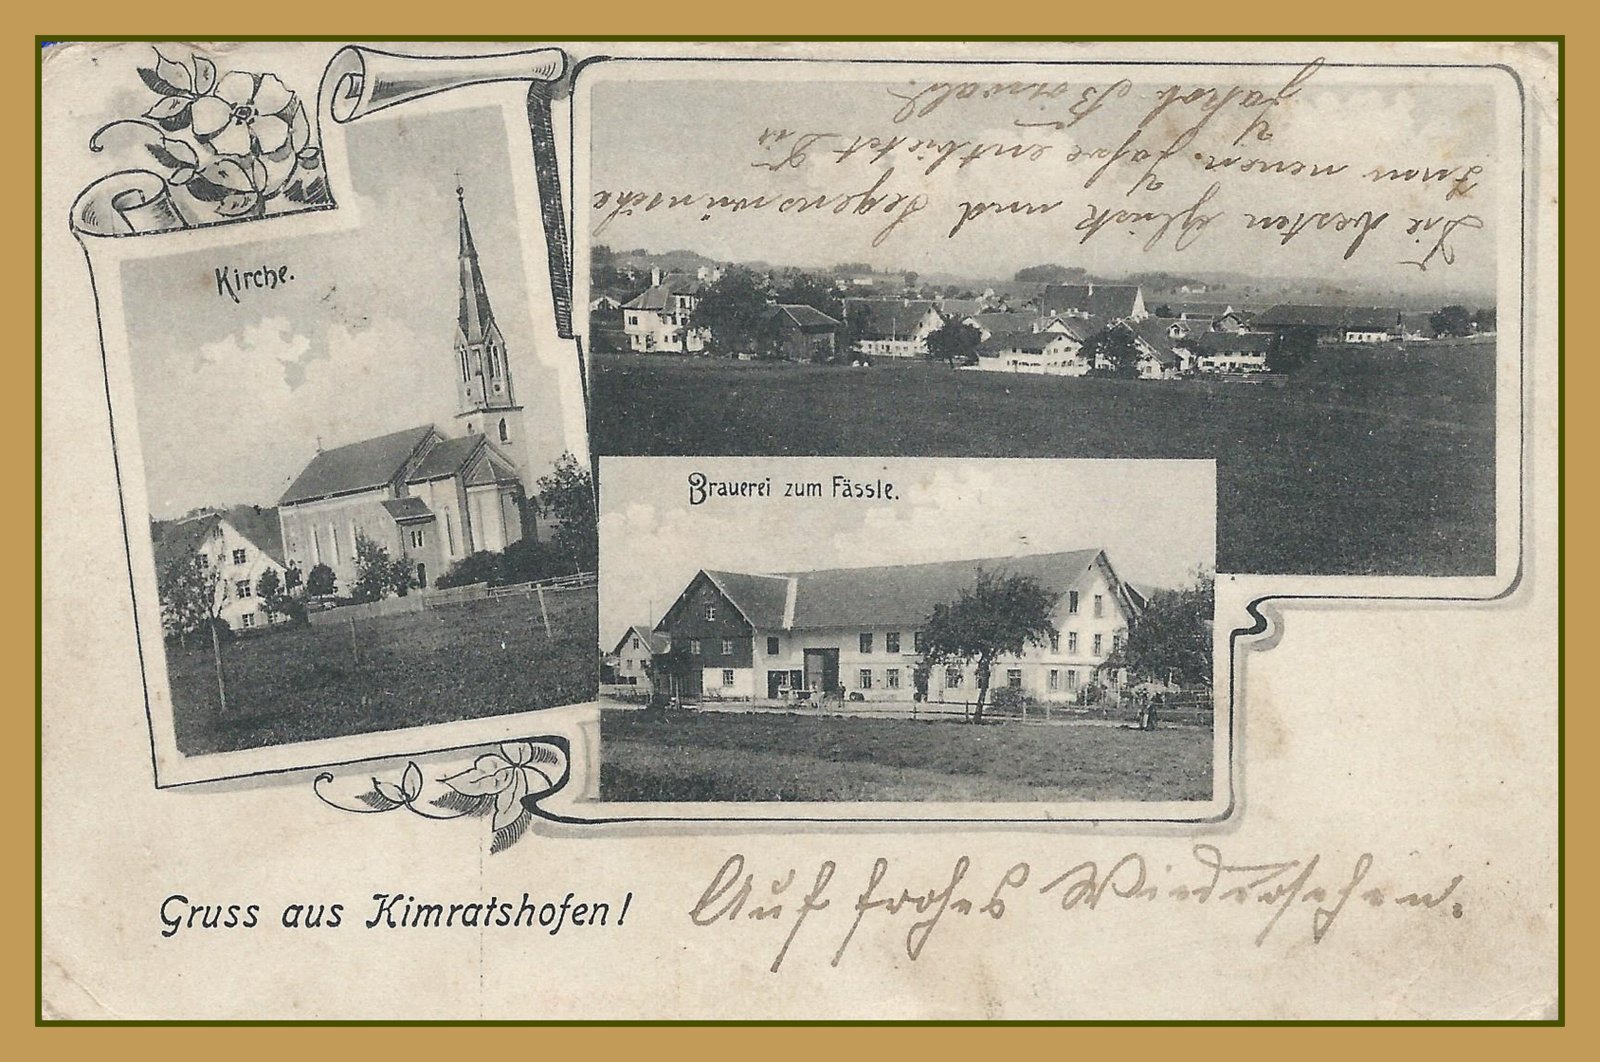 Kirche.
Die besten Glück und Segenswünsche
zum neuen Jahre entbietet Dir
Jakob
Brauerei zum Fässle.
Gruss aus Kimratshofen!
Auf frohes Wiedersehen.